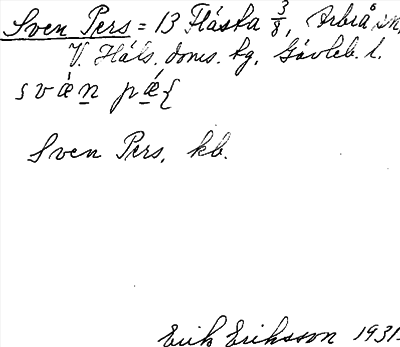 Sven Pers = 13 Fläska 3/8, Arbrå sn,
V. Häls. doms. hg, Gävleb. l.
svæ̀n pǽ{
Sven Pers, kb.
Erik Eriksson 1931.